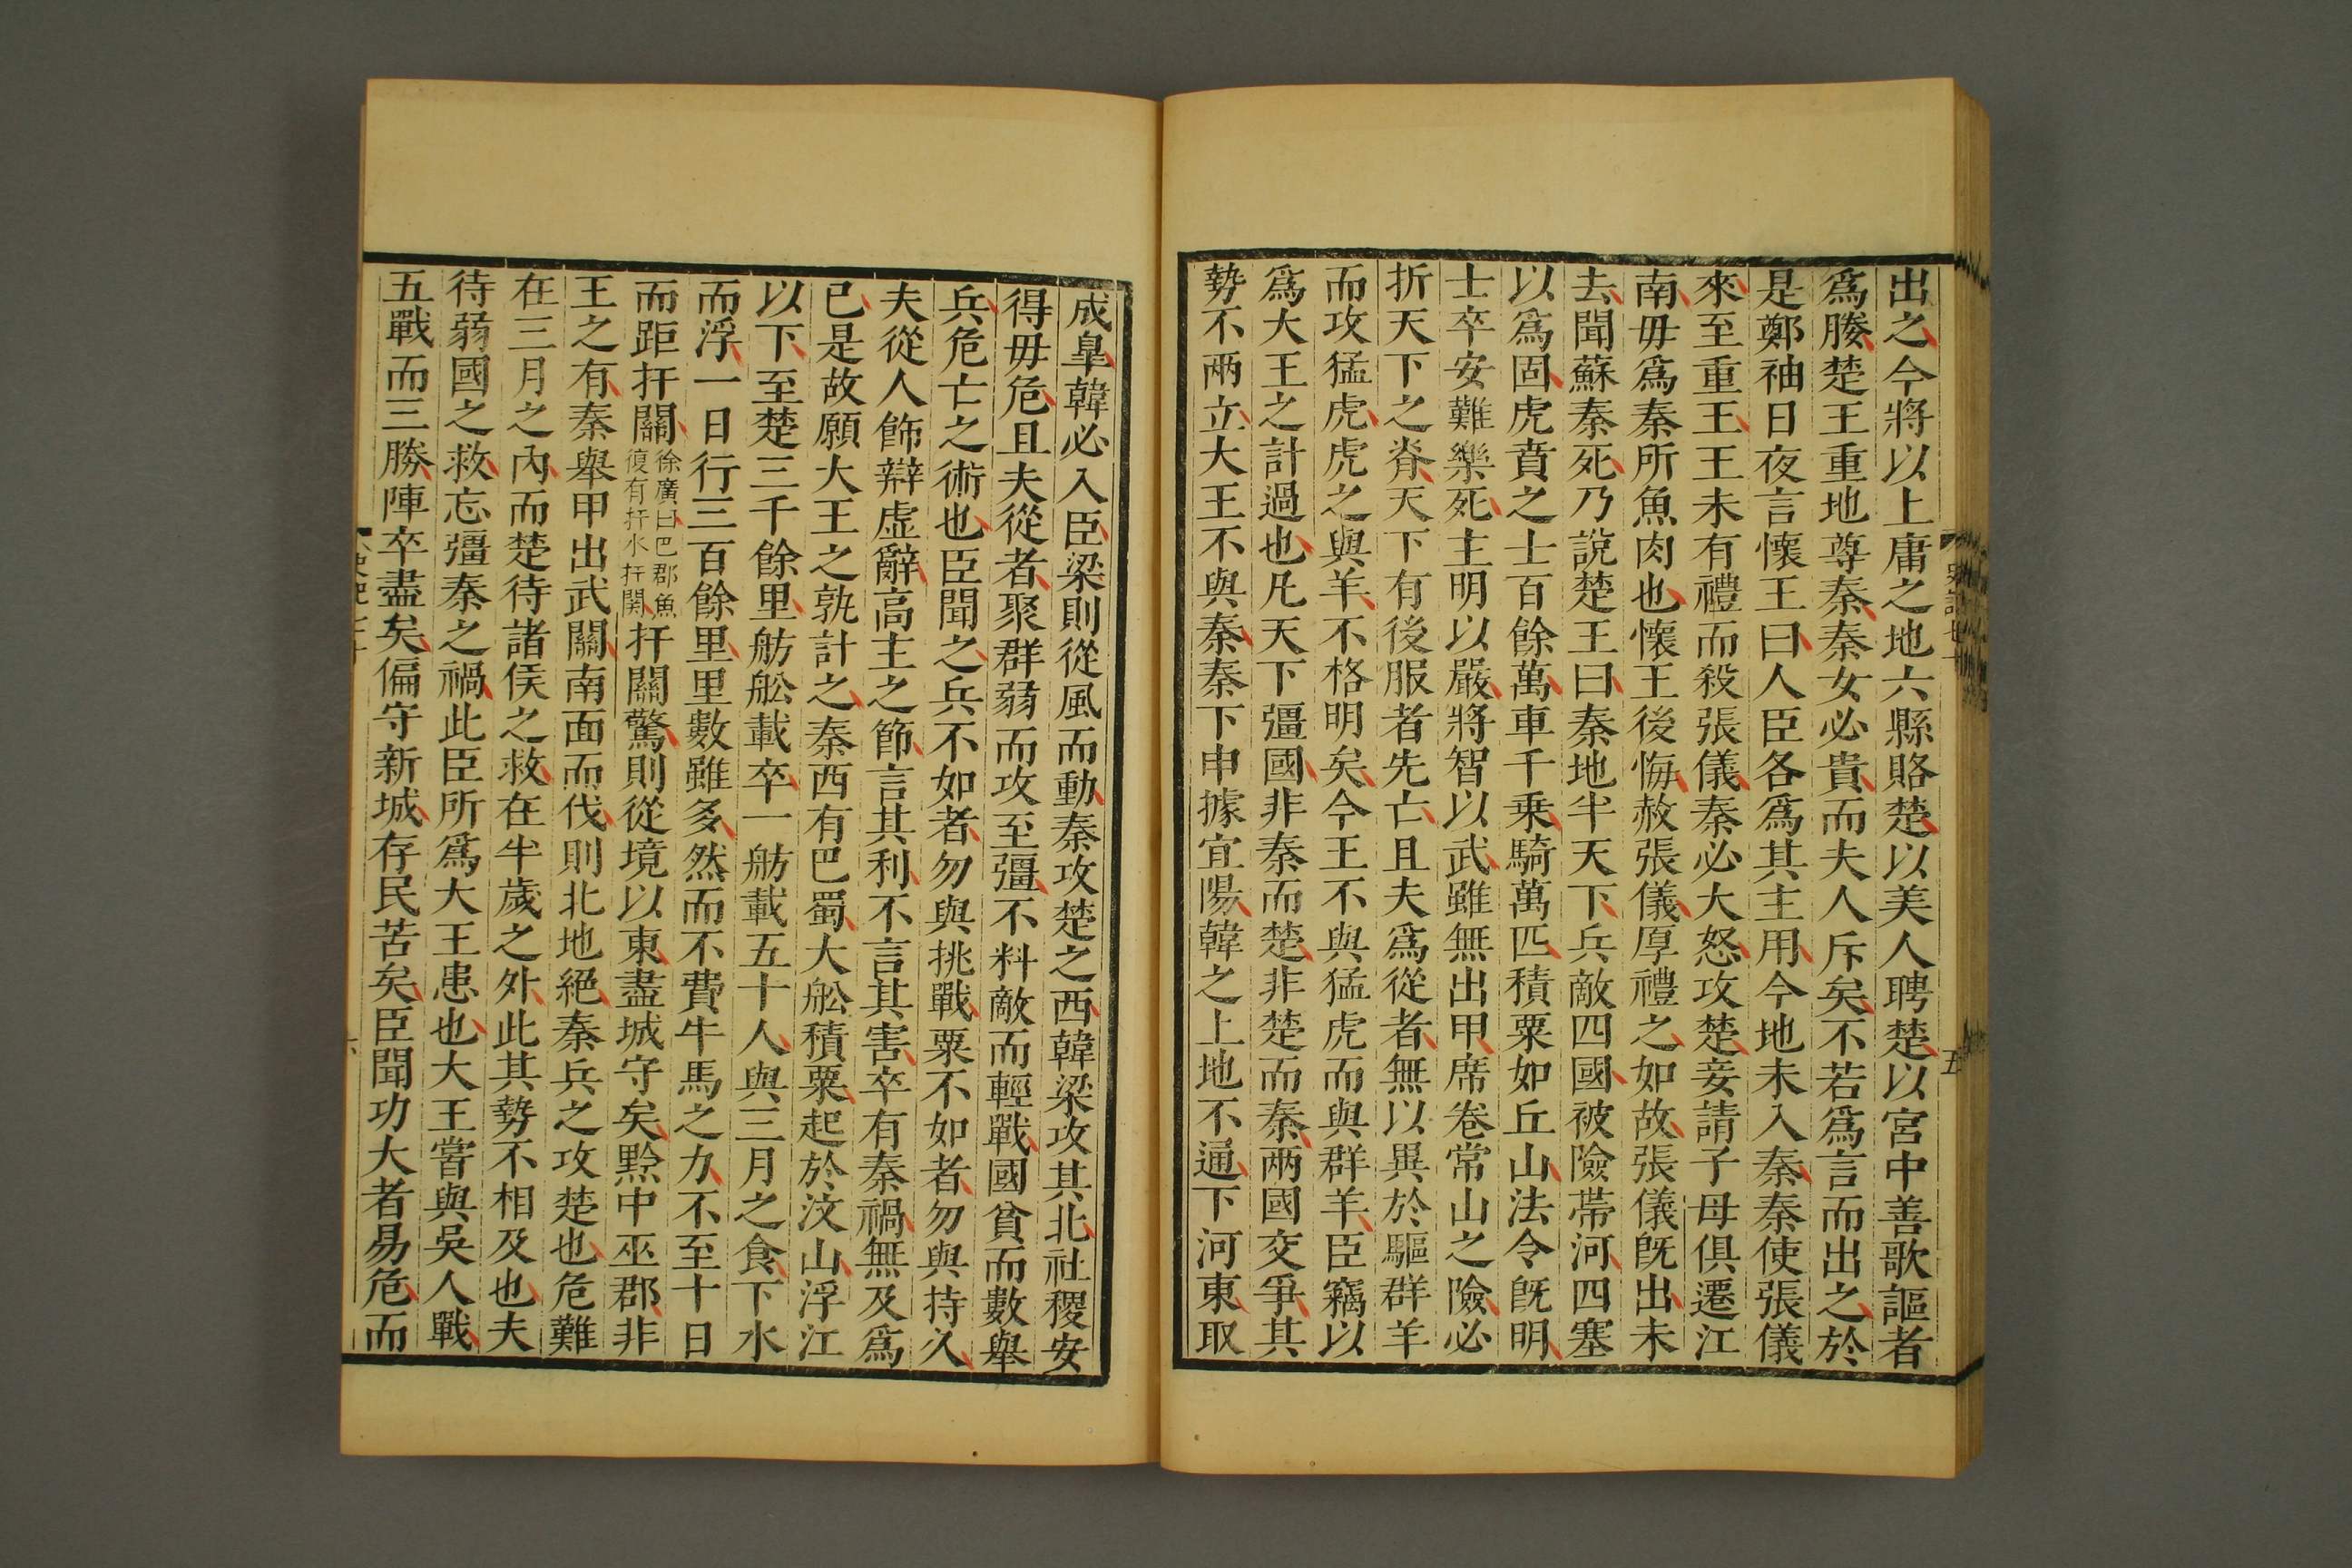 出之今將以上庸之地六縣賂楚以美人聘楚以宮中善歌謳者
爲媵楚王重地尊秦秦女必貴而夫人斥矣不若爲言而出之於
是鄭袖日夜言懷王曰人臣各爲其主用今地未入秦秦使張儀
來至重王王未有禮而殺張儀秦必大怒攻楚妾請子母俱遷江
南毋爲秦所魚肉也懷王後悔赦張儀厚禮之如故張儀旣出未
去聞蘇秦死乃說楚王曰秦地半天下兵敵四國被險帶河四塞
以爲固虎賁之士百餘萬車千乗騎萬匹積粟如丘山法令旣明
士卒安難樂死主明以嚴將智以武雖無出甲席卷常山之險必
折天下之脊天下有後服者先亡且夫爲從者無以異於驅群羊
而攻猛虎虎之與羊不格明矣今王不與猛虎而與群羊臣竊以
爲大王之計過也凡天下彊國非秦而楚非楚而秦兩國交爭其
勢不兩立大王不與秦秦下甲據宜陽韓之上地不通下河東取
成皐韓必入臣梁則從風而動秦攻楚之西韓梁攻其北社稷安
得毋危且夫從者聚群弱而攻至彊不料敵而輕戰國貧而數舉
兵危亡之術也臣聞之兵不如者勿與挑戰粟不如者勿與持久
夫從人飾辯虛辭高主之節言其利不言其害卒有秦禍無及爲
已是故願大王之孰計之秦西有巴蜀大舩積粟起於汶山浮江
以下至楚三千餘里舫舩載卒一舫載五十人與三月之食下水
而浮一日行三百餘里里數雖多然而不費牛馬之力不至十日
而距扞關徐廣曰巴郡魚復有扞水扞関扞關驚則從境以東盡城守矣黥中巫郡非
王之有秦舉甲出武關南面而伐則北地絕秦兵之攻楚也危難
在三月之內而楚待諸侯之救在半歲之外此其勢不相及也夫
待弱國之救忘彊秦之禍此臣所爲大王患也大王嘗與吳人戰
五戰而三勝陣卒盡矣偏守新城存民苦矣臣聞功大者易危而
史記七十
五